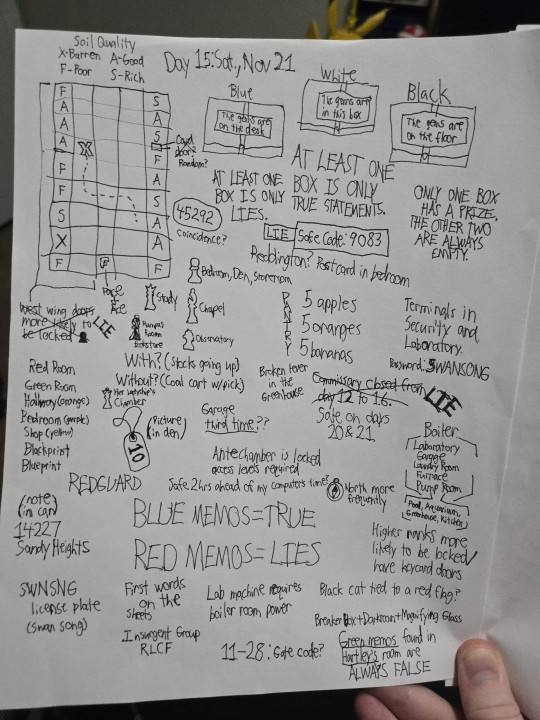 Soil Quality
X-Barren A-Good
F-Poor S-Rich
Day 15: Sat., Nov 21
F
A
A
A
F
F
S
X
F
X
F
S
A
S
F
A
S
A
F
Card
door
Random?
Blue
The gems are
on the desk
White
The gems are
in this box
Black
The gems are
on the floor
AT LEAST ONE
BOX IS ONLY
LIES.
AT LEAST ONE
BOX IS ONLY
TRUE STATEMENTS.
ONLY ONE BOX
HAS A PRIZE.
THE OTHER TWO
ARE ALWAYS
EMPTY.
45292
coincidence?
LIE Safe Code: 9083
Reddington? Postcard in bedroom
Bedroom, Den, Storeroom
Study
Chapel
Rumpus
Room
Observatory
Her Ladyship's
Chamber
West wing doors
more likely to
be locked
LIE
PANTRY
5 apples
5 oranges
5 bananas
Terminals in
Security and
Laboratory.
Password: SWANSONG
With? (Stocks going up)
Without? (Coal cart w/pick)
Broken lever
in the
Greenhouse
Commissary closed from
day 12 to 16.
LIE
Sale on days
20 & 21.
Red Room
Green Room
Hallway (orange)
Bedroom (purple)
Shop (yellow)
Blackprint
Blueprint
10
(Picture
in den)
Garage
third time??
Antechamber is locked
access levels required
Boiler
Laboratory
Garage
Laundry Room
Furnace
Pump Room
Pool, Aquarium,
Greenhouse, Kitchen
REDGUARD
Safe 2hrs ahead of my computer's time?
North more
frequently
(note)
(in car)
14227
Sandy Heights
BLUE MEMOS=TRUE
RED MEMOS=LIES
Higher ranks more
likely to be locked/
have keycard doors
SWNSNG
license plate
(swan song)
First words
on the
sheets
Lab machine requires
boiler room power
Black cat tied to a red flag?
Breaker Box+Darkroom+Magnifying Glass
Insurgent Group
RLCF
11-28: Gate code?
Green memos found in
Hartley's room are
ALWAYS FALSE